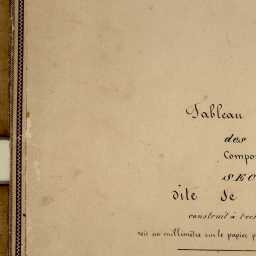 Tableau
des
Compo
SEC
dite de
construit à
soit un millimètre sur le papier p